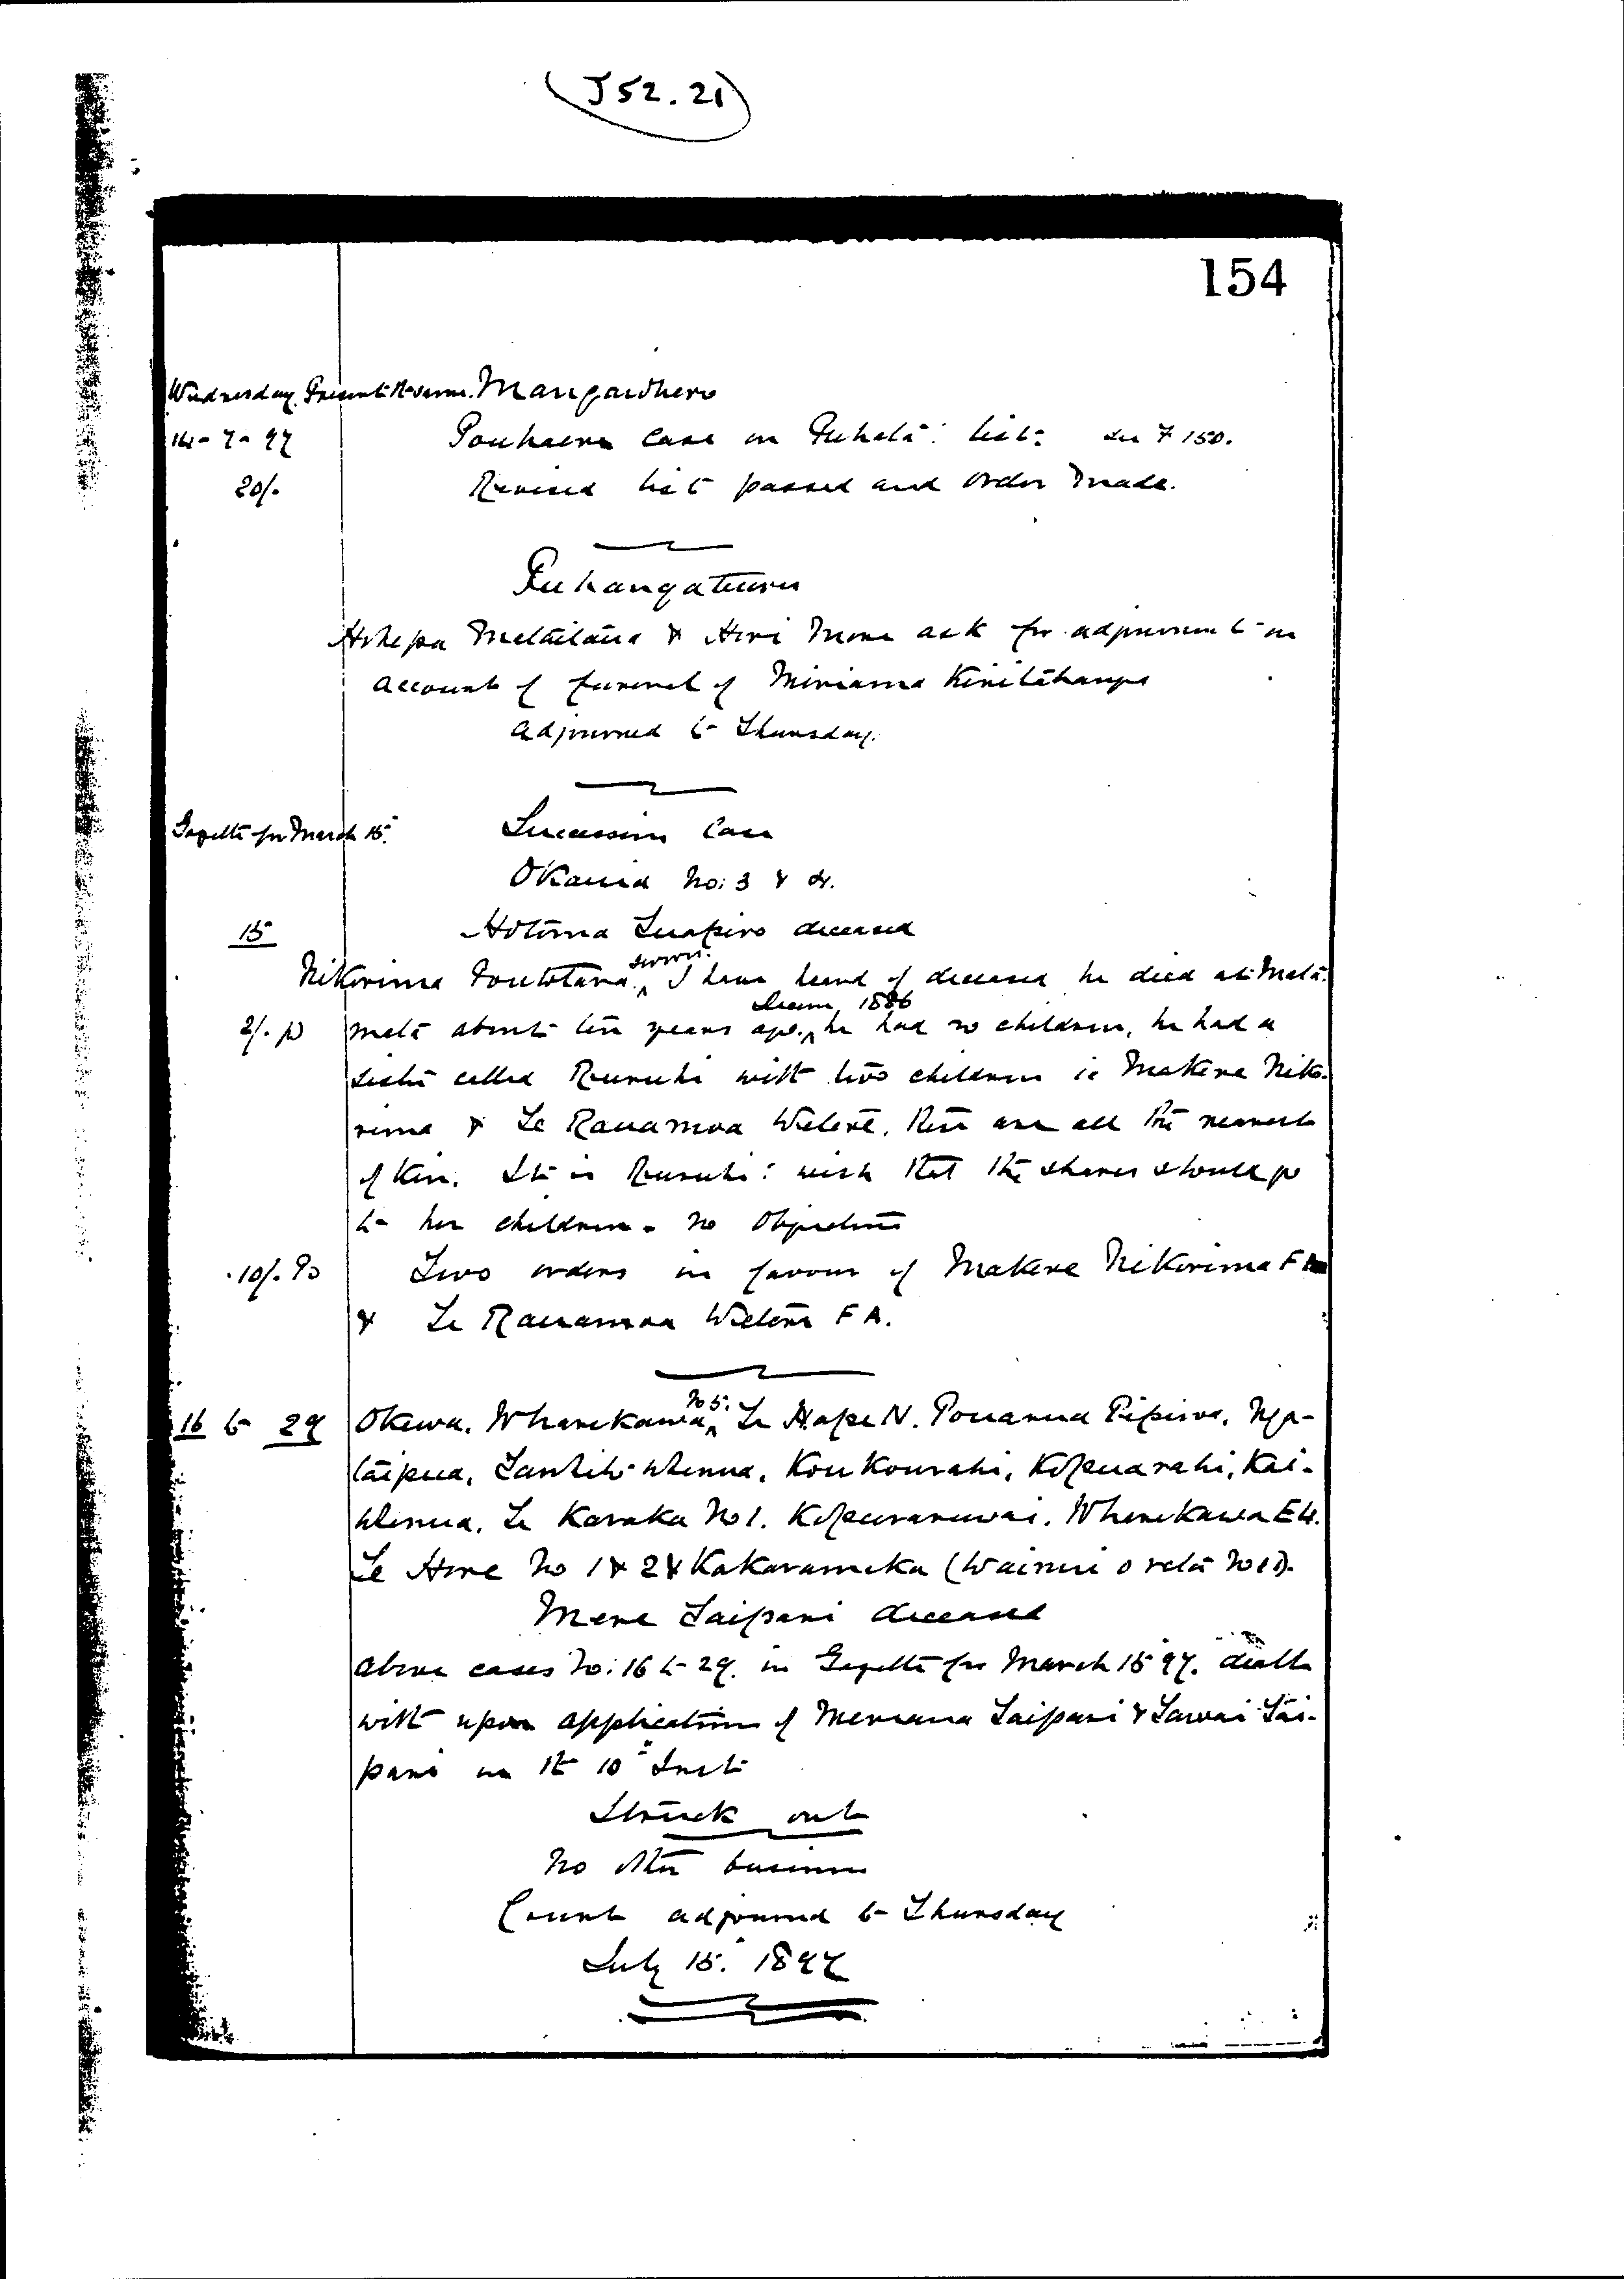 J52.21
154
Wednesday Present the same. Mangawhero
14-7-97 case on list: see F 150.
20/. Revised list passed and order made.
Puhangateuru
Hohepa Metaitaua & Hori More ask for adjournment on
account of funeral of Miriama Kiritahanga
adjourned to Thursday.
Gazette for March 15. Succession Case
Okauia No: 3 & 4.
15 Hotoma Tuapiro deceased
Nikorima Poutotara sworn. I have heard of deceased he died at Mata-
2/. pd mata about ten years ago, 1886 he had no children, he had a
sister called Ruruhi with two children ie Makere Niko-
rima & Te Rauamoa Wetere. These are all the nearest
of kin. It is Ruruhi: wish that the shares should go
to her children. No Objections
10/. Pd Two orders in favour of Makere Nikorima F A
& Te Rauamoa Wetere F A.
16 to 29 Okewa, Wharekawa No 5, Te Hape N. Pouarua Pipiroa, Nga-
taipua, whenua, Koukourahi, Kopuarahi, Kai-
whenua, Te Karaka No 1. Kopuraruwai. Wharekawa E4.
Te Horete No 1 & 2 & Kakaramea (Wainui o reta No 1).
Mere Taipari deceased
above cases No: 16 to 29 in Gazette for March 15 97. dealt
with upon application of Meriana Taipari & Tawai Tai-
pari on the 10th Inst
Struck out
No other business
Court adjourned to Thursday
July 15. 1897